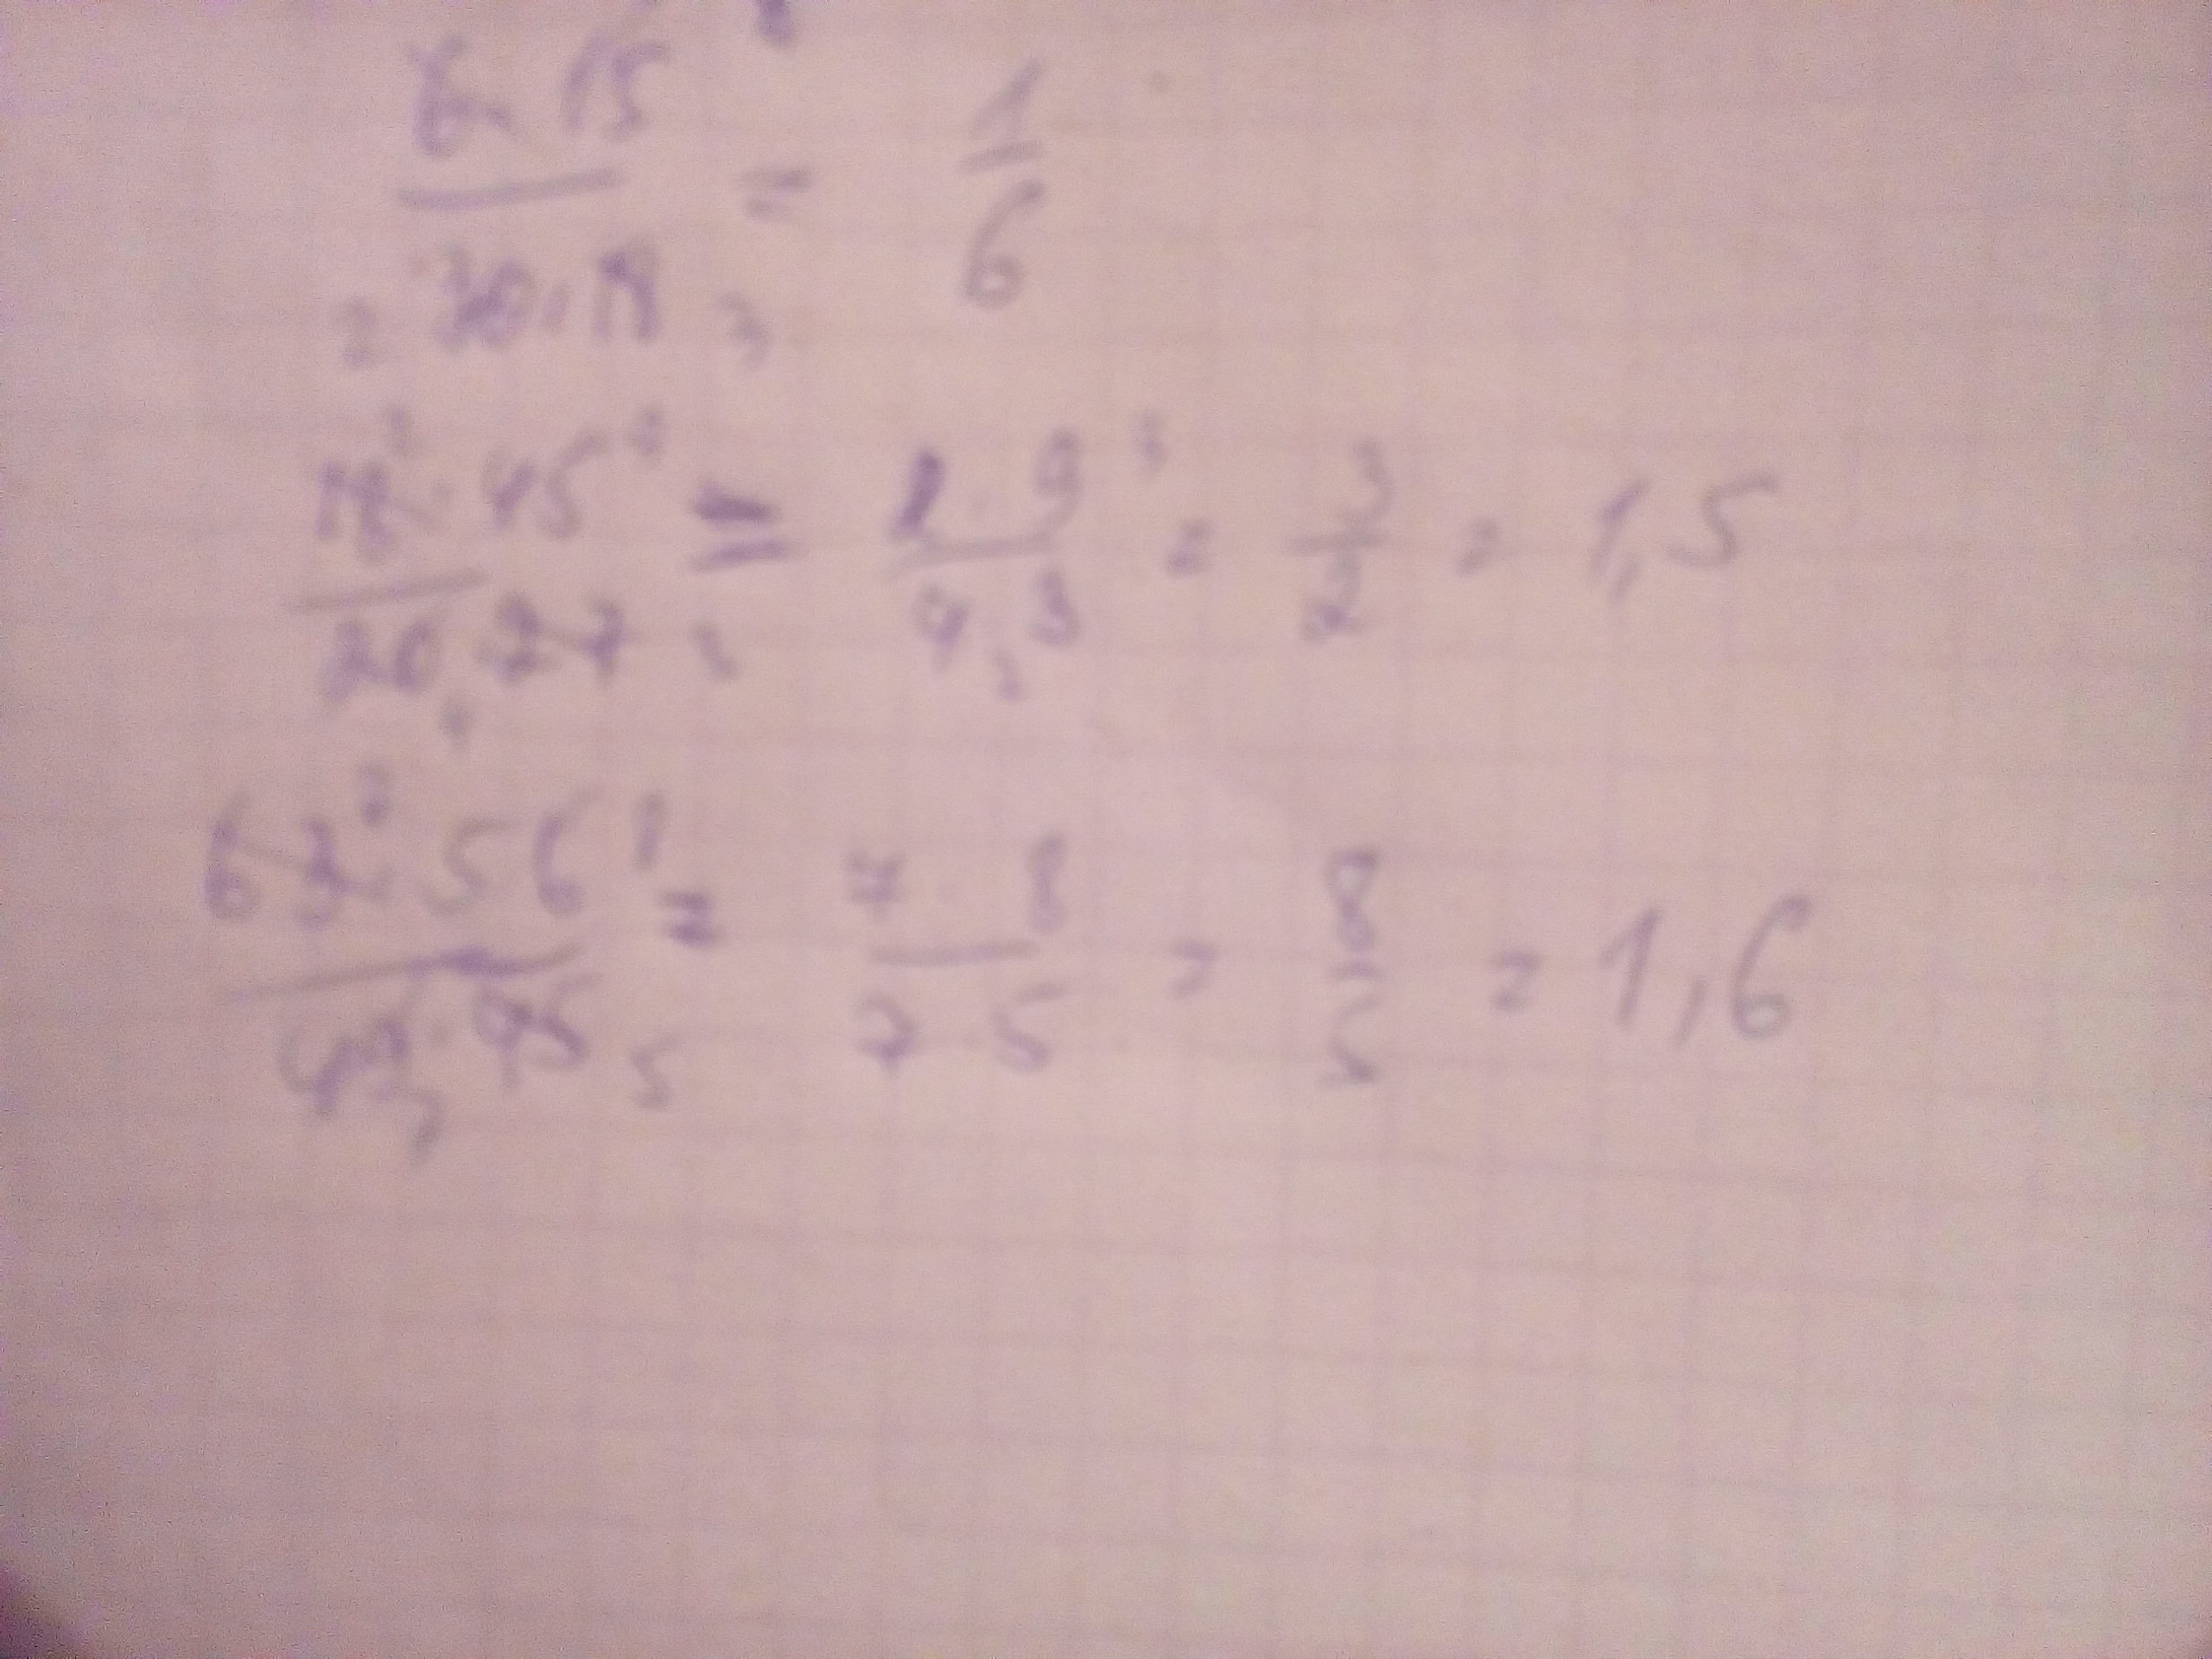 6·15 / 30·18 = 1/6
2 3
18·45 / 20·27 = 2·9 / 4·3 = 3/2 = 1,5
63·56 / 49·45 = 7·8 / 7·5 = 8/5 = 1,6
7 5